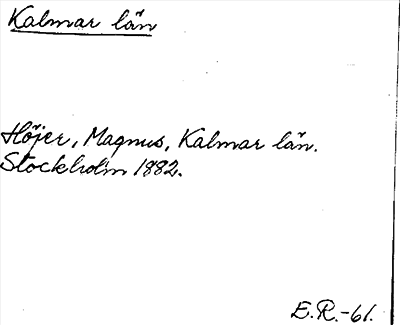 Kalmar län
Höjer, Magnus, Kalmar län.
Stockholm 1882.
E.R.-61.